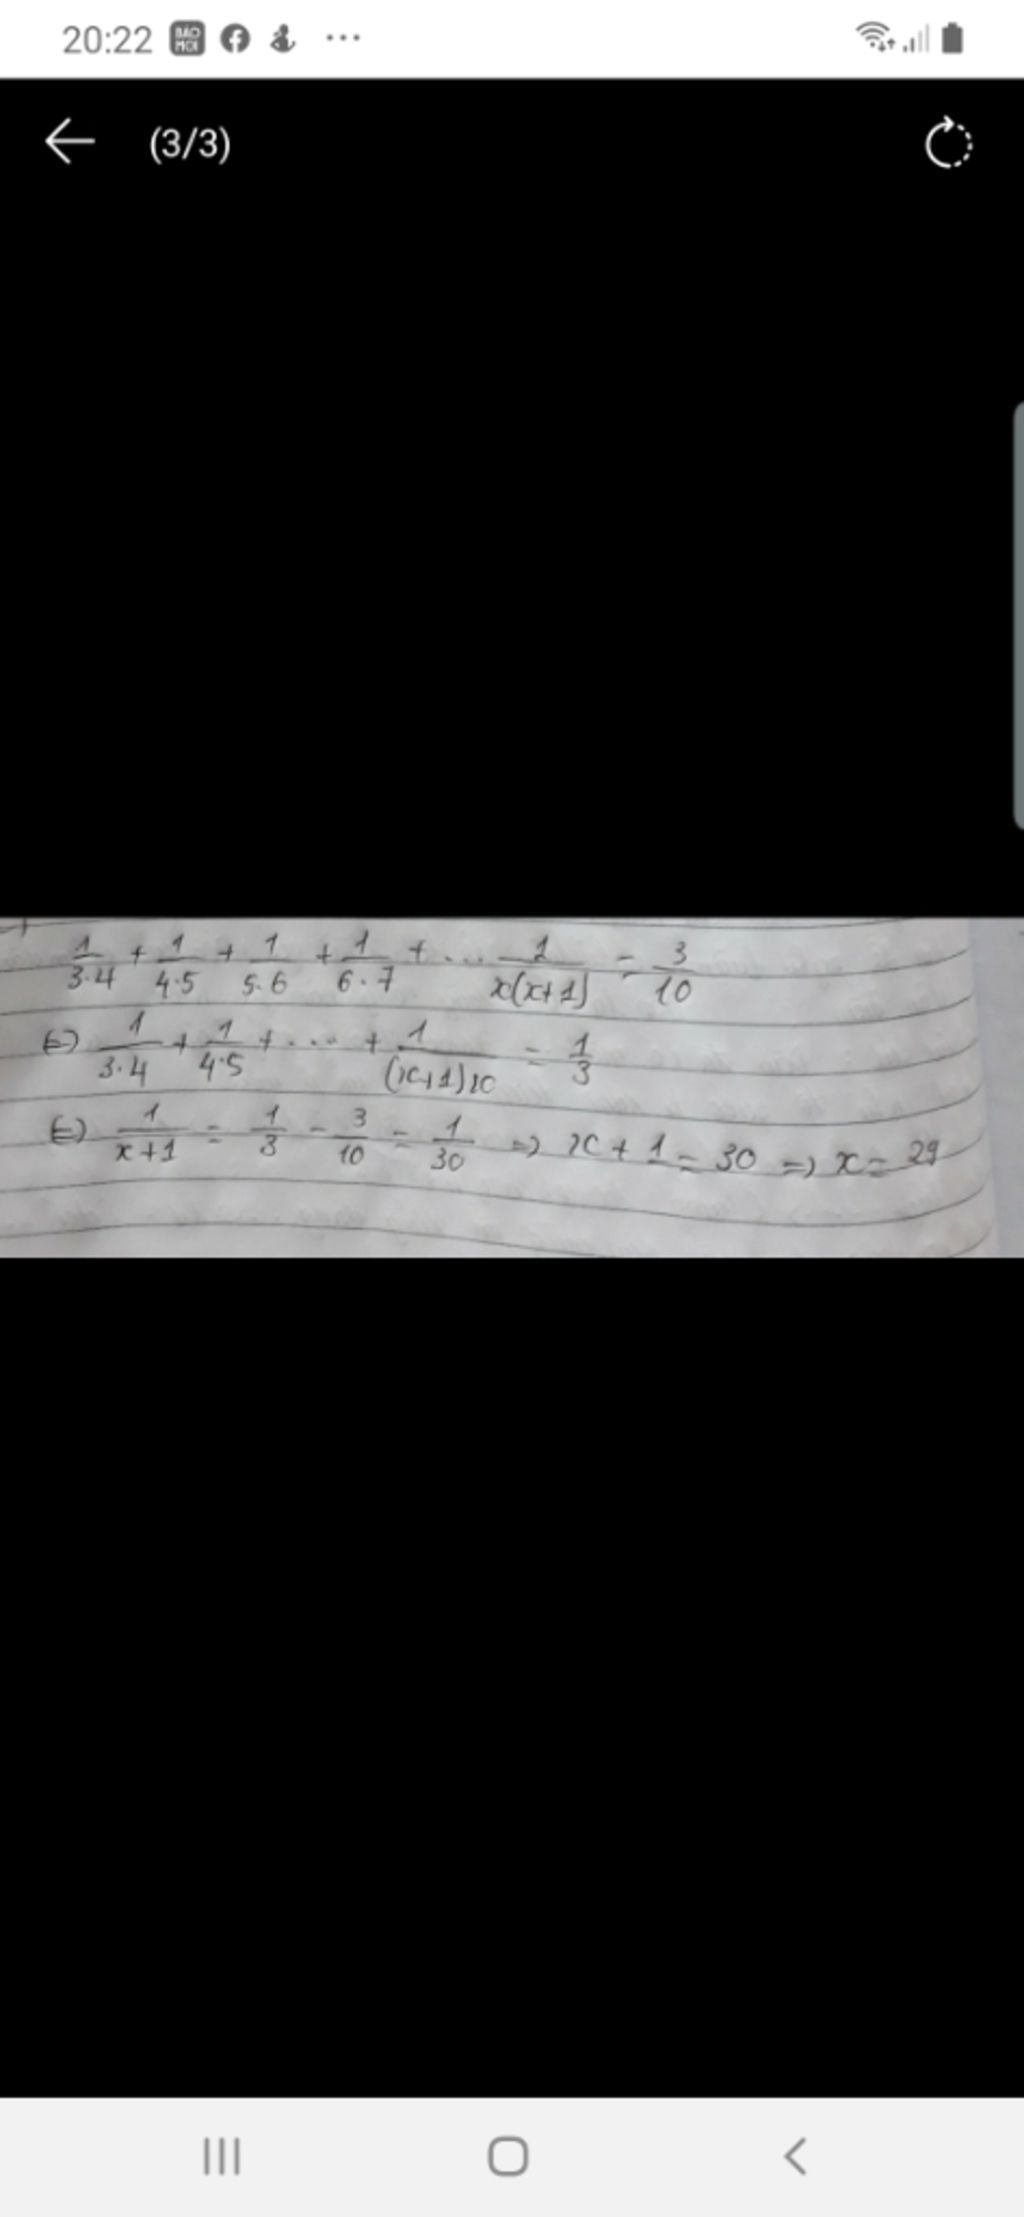 20:22 BÁO MỚI
(3/3)
1/3·4 + 1/4·5 + 1/5·6 + 1/6·7 + ... 1/x(x+1) = 3/10
(=) 1/3·4 + 1/4·5 + ... + 1/(x+1)x = 1/3
(=) 1/x+1 = 1/3 - 3/10 = 1/30 => x + 1 = 30 => x = 29